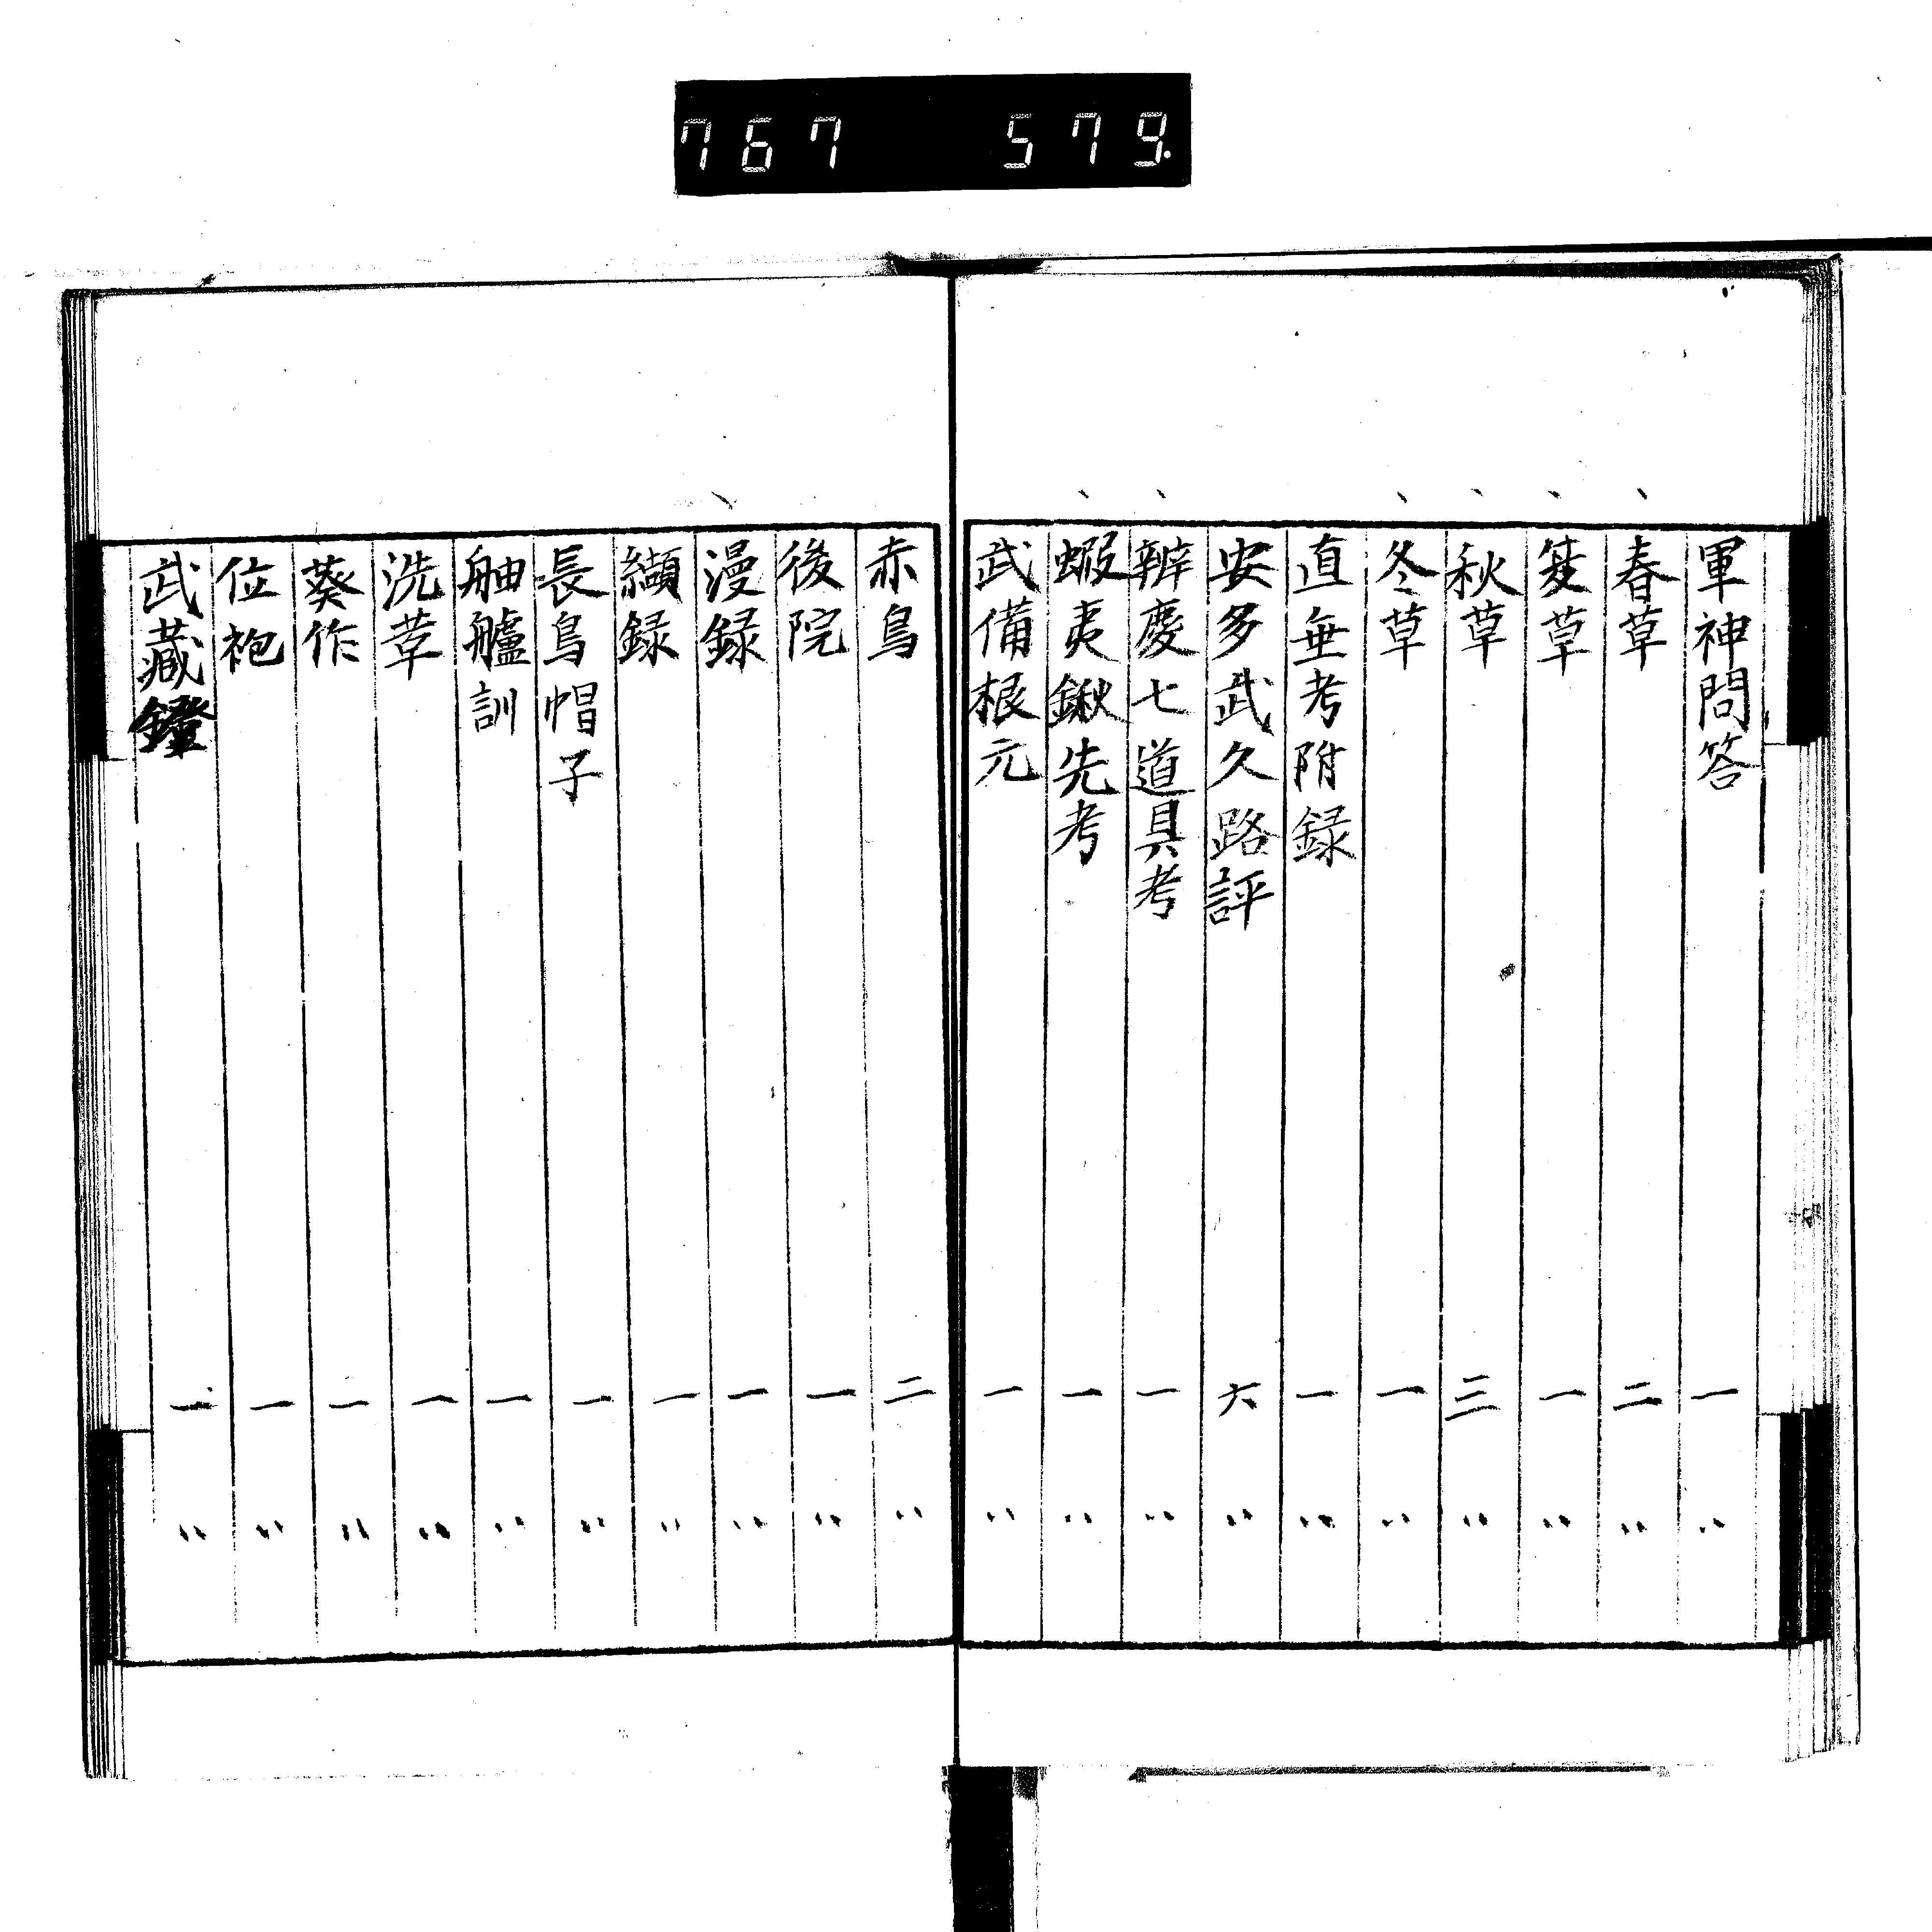 767 579.
軍神問答 一 〃
春草 二 〃
夏草 一 〃
秋草 三 〃
冬草 一 〃
直垂考附録 一 〃
安多武久路評 六 〃
辨慶七道具考 一 〃
蝦夷鍬先考 一 〃
武備根元 一 〃
赤鳥 二 〃
後院 一 〃
漫録 一 〃
纈録 一 〃
長烏帽子 一 〃
舳艫訓 一 〃
洗革 一 〃
葵作 一 〃
位袍 一 〃
武藏鐙 一 〃